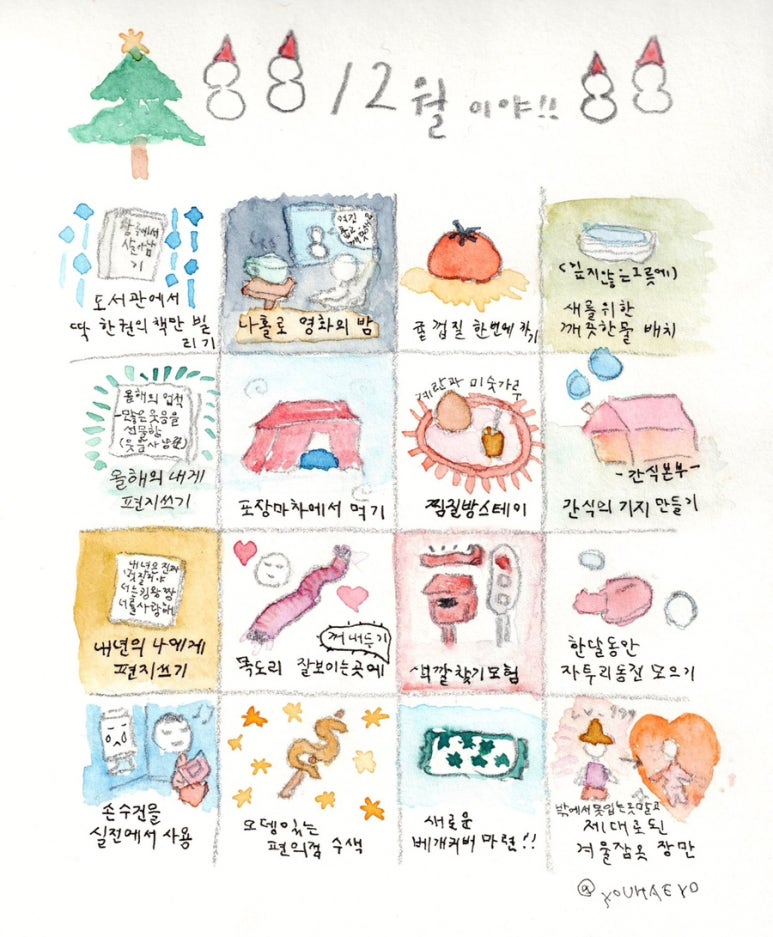 12월이야!!
황야에서
살아남
기
도서관에서
딱 한권의 책만 빌
리기
여긴
나홀로 영화의 밤
귤 껍질 한번에 까기
(깊지않은그릇에)
새를위한
깨끗한물 배치
올해의 업적
-많은웃음을
선물함
올해의 내게
편지쓰기
포장마차에서 먹기
계란과 미숫가루
찜질방스테이
-간식본부-
간식의 기지 만들기
내년은진짜
멋질거야
너를사랑해
내년의 나에게
편지쓰기
꺼내두기
목도리 잘보이는곳에
색깔찾기모험
한달동안
자투리동전 모으기
손수건을
실전에서 사용
오뎅있는
편의점 수색
새로운
베개커버 마련!!
밖에서못입는옷말고
제대로된
겨울잠옷 장만
@YOUHAEYO